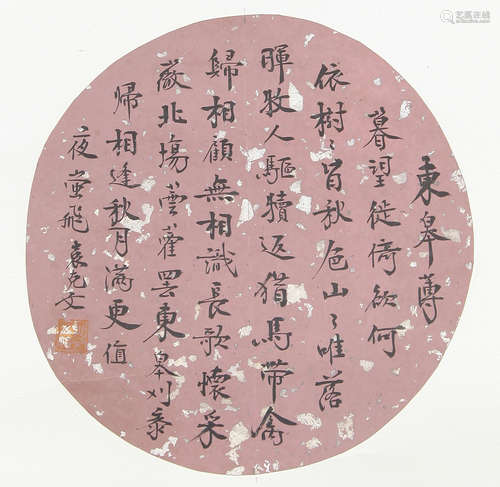 東皋薄
暮望徙倚欲何
依樹〻皆秋色山〻唯落
暉牧人驅犢返猎馬帶禽
歸相顧無相識長歌懷采
薇北場蕓藿罷東皋刈黍
歸相逢秋月滿更值
夜螢飛 袁克文
艺狐在线
artfoxlive.com